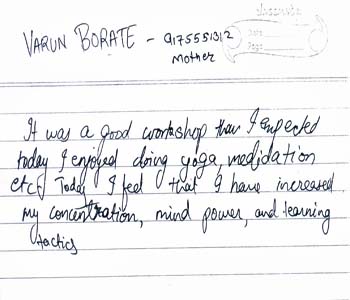 classmate
Date
Page
VARUN BORATE - 9175551312
Mother
It was a good workshop than I expected
today I enjoyed doing yoga, medidation
etc. Today I feel that I have increased.
my concentration, mind power, and learning
tactics